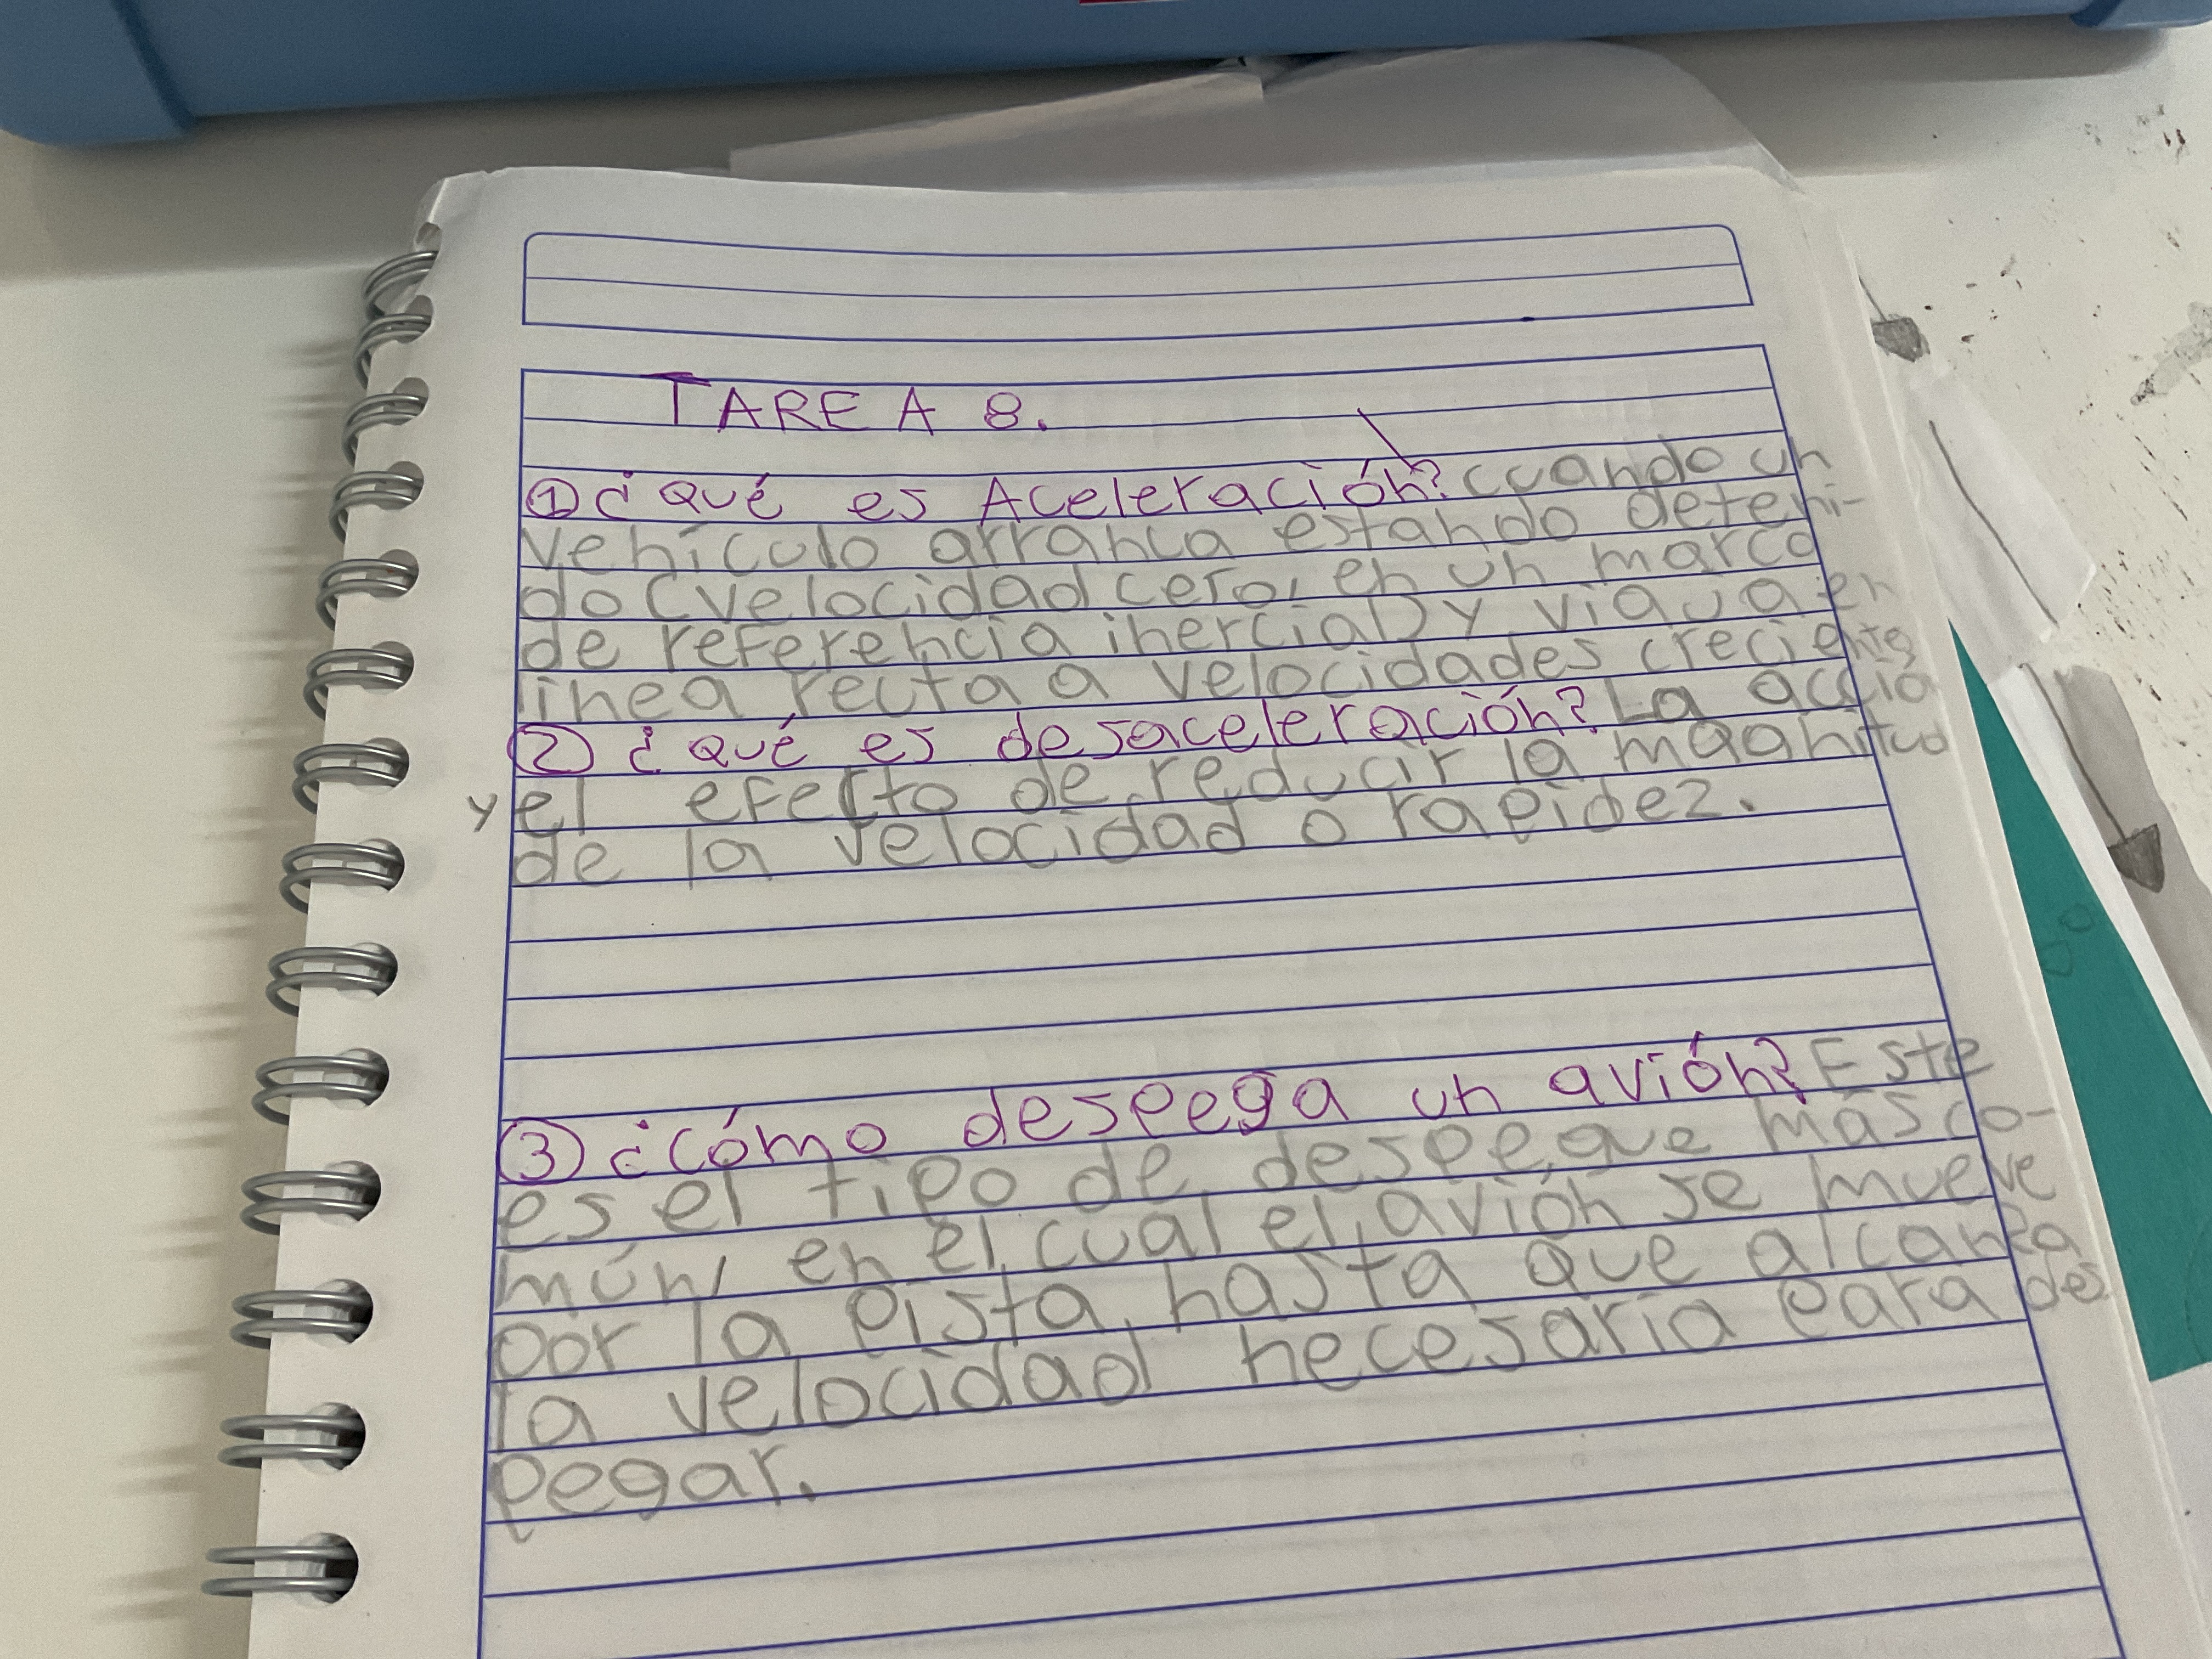 TAREA 8.
① ¿Qué es Aceleración? cuando un
vehículo arranca estando deteni-
do (velocidad cero, en un marco
de referencia inercial) y viaja en
línea recta a velocidades creciente
② ¿qué es desaceleración? La acció
y el efecto de reducir la magnitud
de la velocidad o rapidez.
③ ¿cómo despega un avión? Este
es el tipo de despegue más co-
mún, en el cual el avión se mueve
por la pista, hasta que alcanza
la velocidad necesaria para des
pegar.